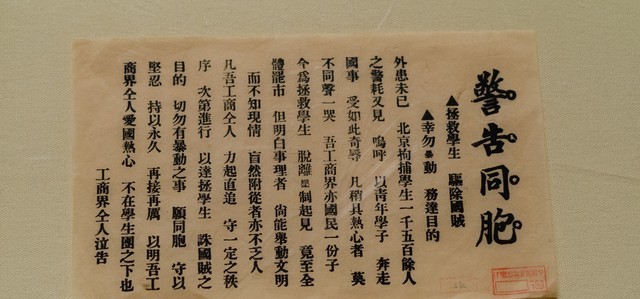 警告同胞
▲拯救學生 驅除國賊
▲幸勿暴動 務達目的
外患未已 北京拘捕學生一千五百餘人
之警耗又見 嗚呼 以青年學子 奔走
國事 受如此奇辱 凡稍具熱心者 莫
不同聲一哭 吾工商界亦國民一份子
今爲拯救學生 脫離 制起見 竟至全
體罷市 但明白事理者 尙能舉動文明
而不知現情 盲然附從者亦不乏人
凡吾工商仝人 力起直追 守一定之秩
序 次第進行 以達拯學生 誅國賊之
目的 切勿有暴動之事 願同胞 守以
堅忍 持以永久 再接再厲 以明吾工
商界仝人愛國熱心 不在學生團之下也
工商界仝人泣告